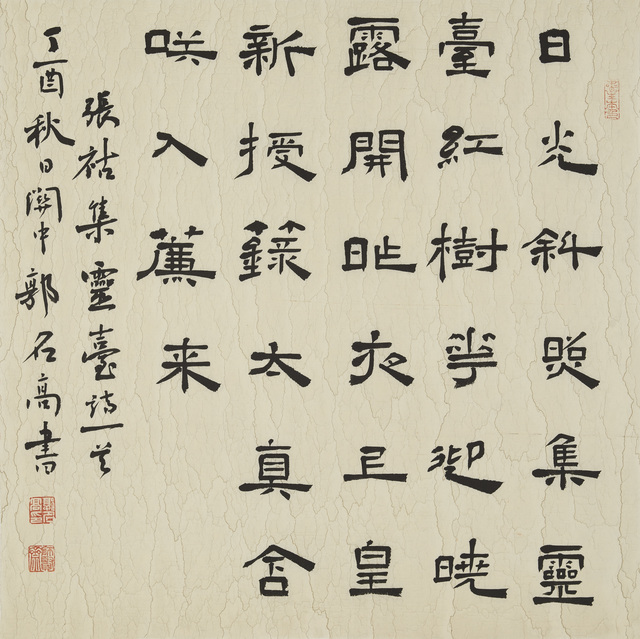 日光斜照集靈
臺紅樹花迎曉
露開昨夜上皇
新授籙太真含
咲入簾来
張祜集靈臺詩一首
丁酉秋日關中郭名高書